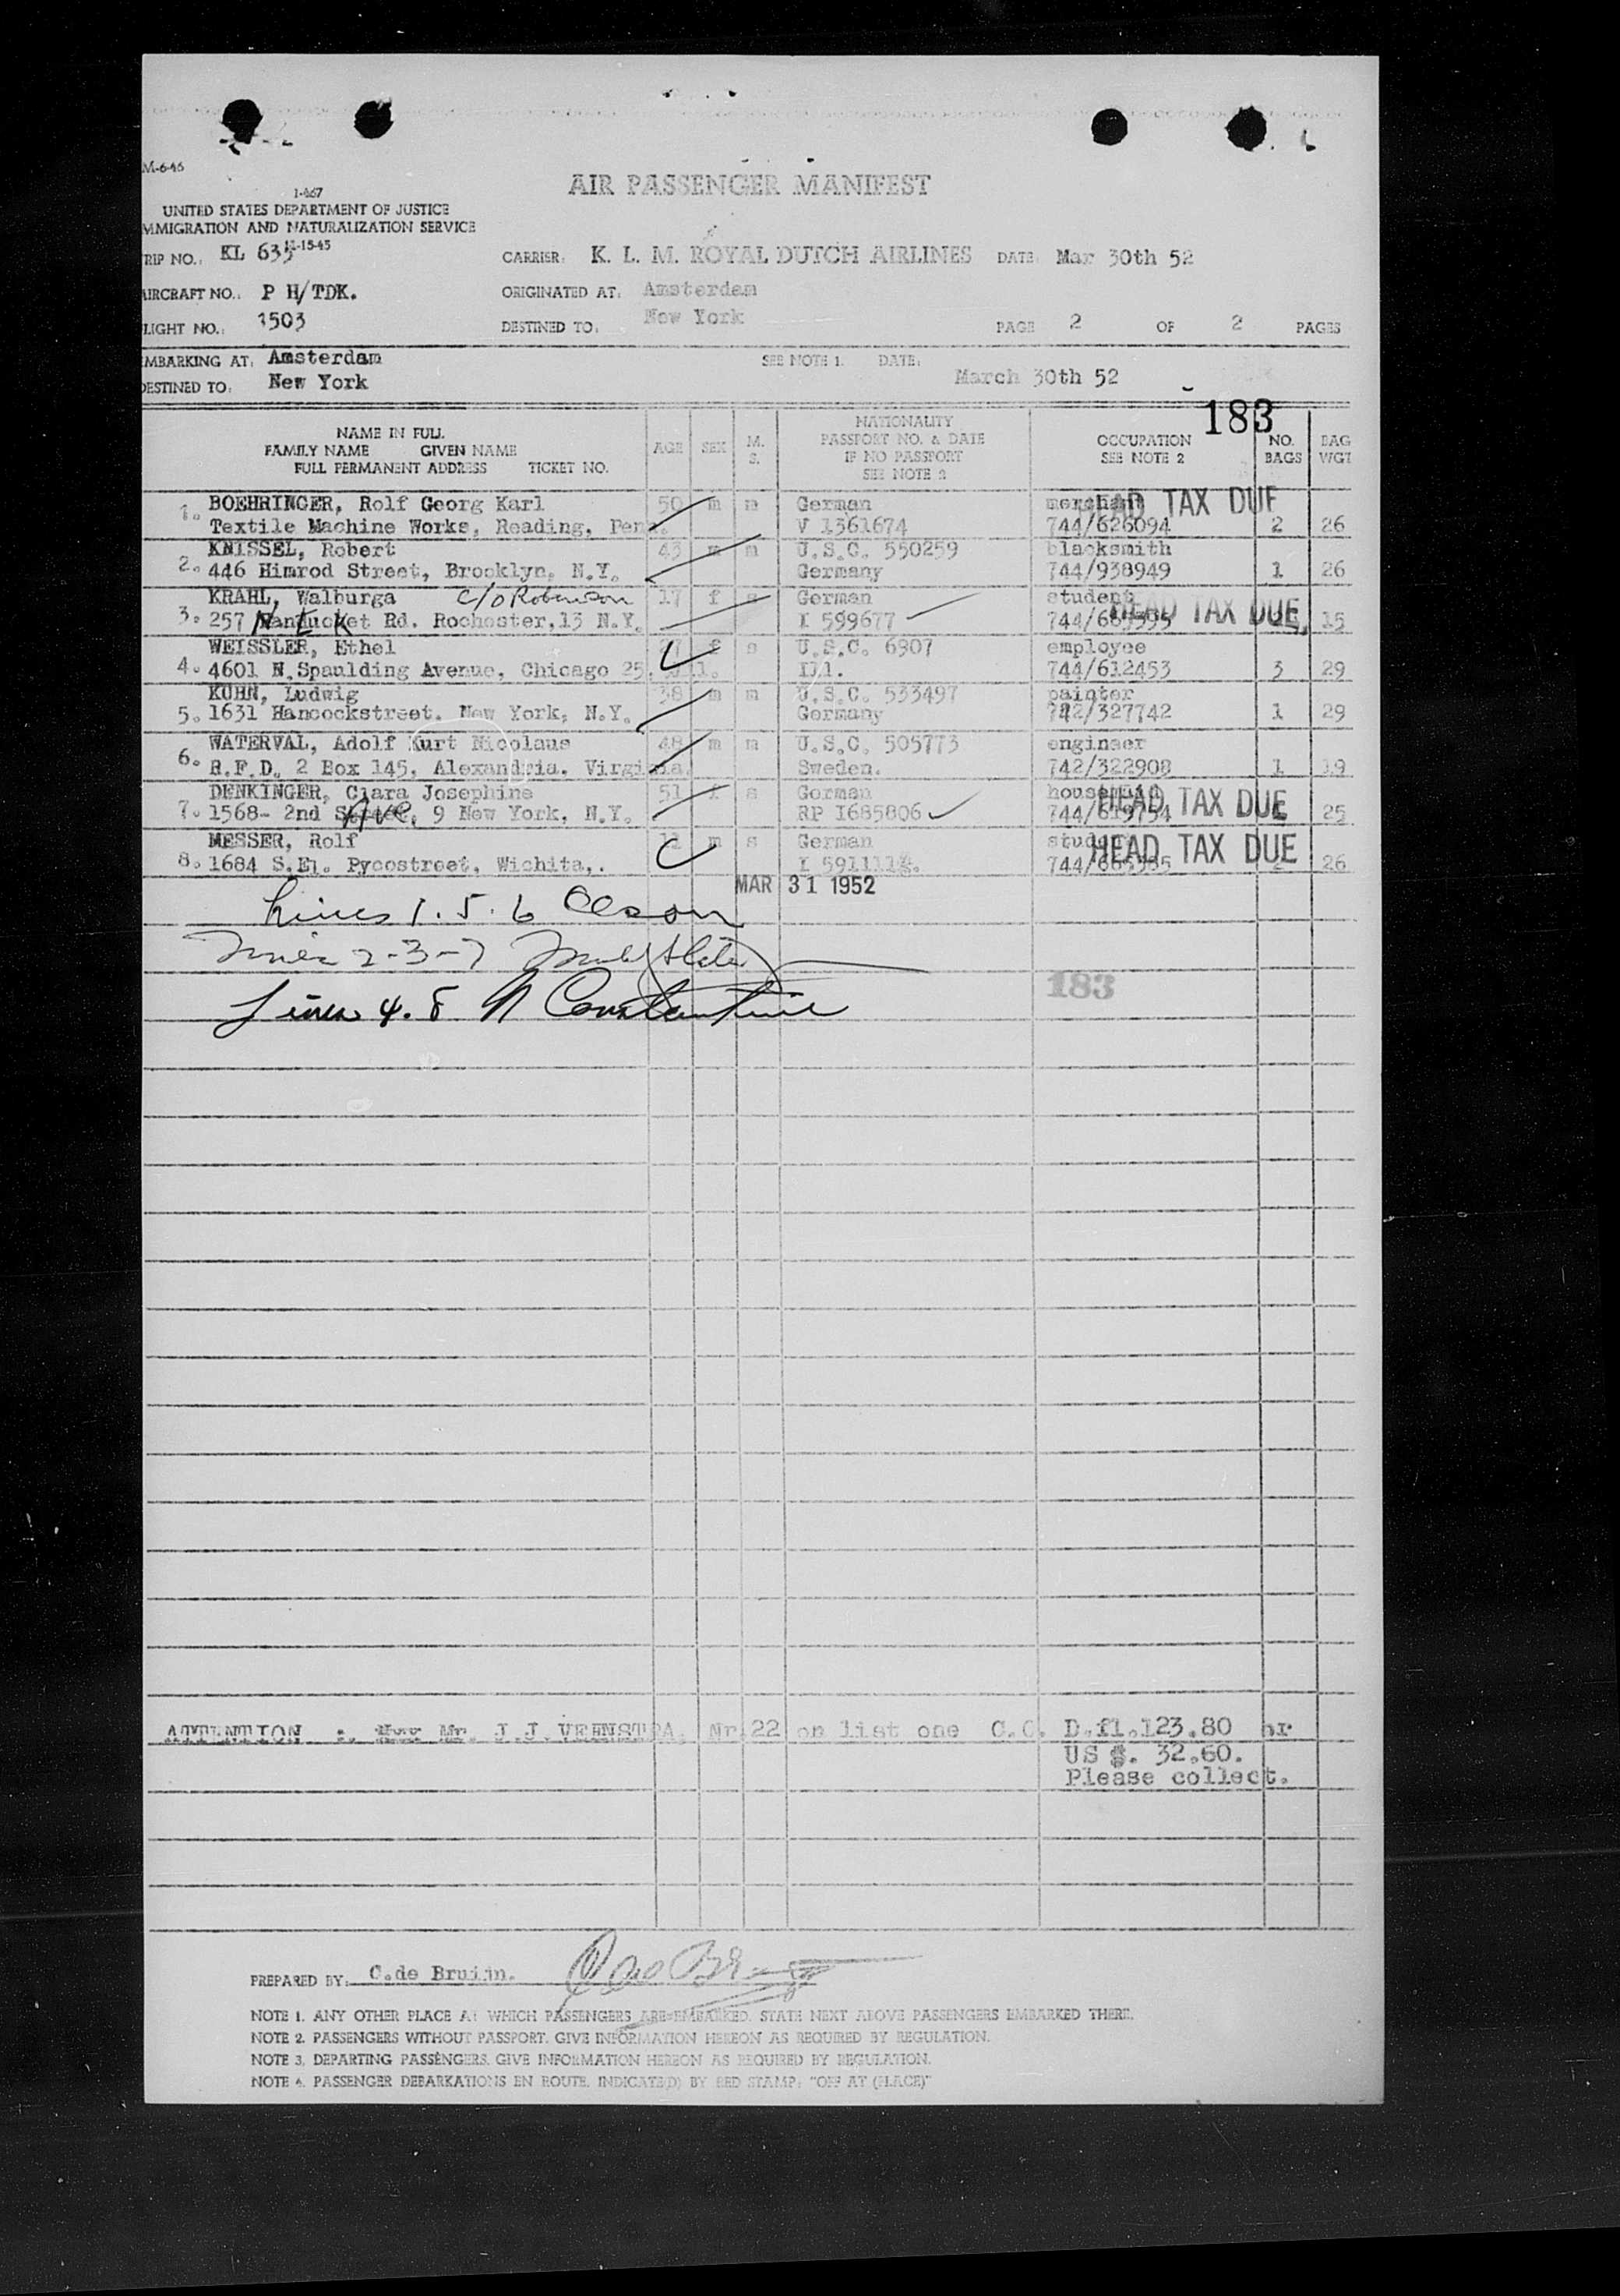 M-6-46
I-467
AIR PASSENGER MANIFEST
UNITED STATES DEPARTMENT OF JUSTICE
MMIGRATION AND NATURALIZATION SERVICE
RIP NO.: KL 635 -15-45 CARRIER: K. L. M. ROYAL DUTCH AIRLINES DATE: Mar 30th 52
AIRCRAFT NO.: P H/TDK. ORIGINATED AT: Amsterdam
LIGHT NO.: 1503 DESTINED TO: New York PAGE 2 OF 2 PAGES
EMBARKING AT: Amsterdam SEE NOTE 1. DATE:
DESTINED TO: New York March 30th 52
183
NAME IN FULL
FAMILY NAME GIVEN NAME
FULL PERMANENT ADDRESS TICKET NO.
AGE SEX M. S.
NATIONALITY
PASSPORT NO. & DATE
IF NO PASSPORT
SEE NOTE 2
OCCUPATION
SEE NOTE 2
NO. BAGS
BAG WGT
1. BOEHRINGER, Rolf Georg Karl 50 m m German merchant HEAD TAX DUE
Textile Machine Works, Reading, Penn. V 1361674 744/626094 2 26
KNISSEL, Robert 43 m m U.S.C. 550259 blacksmith
2. 446 Himrod Street, Brooklyn, N.Y. Germany 744/938949 1 26
KRAHL, Walburga c/o Robinson 17 f s German student HEAD TAX DUE
3. 257 Nantucket Rd. Rochester,13 N.Y. I 599677 15
N L K
WEISSLER, Ethel f s U.S.C. 6907 employee
4. 4601 N.Spaulding Avenue, Chicago 25, Ill. Ill. 744/612453 3 29
KUHN, Ludwig 38 m m U.S.C. 533497 painter
5. 1631 Hancockstreet. New York, N.Y. Germany 742/327742 1 29
WATERVAL, Adolf Kurt Nicolaus 48 m m U.S.C. 505773 engineer
6. R.F.D. 2 Box 145, Alexandria. Virginia. Sweden. 742/322908 1 19
DENKINGER, Clara Josephine 51 f s German housemaid HEAD TAX DUE
7. 1568- 2nd Street, Ave, 9 New York, N.Y. RP I685806 744/619754 25
MESSER, Rolf m s German student HEAD TAX DUE
8. 1684 S.El. Pycostreet, Wichita,. 26
MAR 31 1952
Lines 1. 5. 6 Olson
Lines 2-3-7
183
Lines 4. 8 N Constantine
ATTENTION : Mr. J.J. VEENSTRA, Nr 22 on list one C.C. D.fl.123.80 or
US $. 32.60.
Please collect.
PREPARED BY: C.de Bruijn.
NOTE 1. ANY OTHER PLACE AT WHICH PASSENGERS ARE EMBARKED. STATE NEXT ABOVE PASSENGERS EMBARKED THERE.
NOTE 2. PASSENGERS WITHOUT PASSPORT. GIVE INFORMATION HEREON AS REQUIRED BY REGULATION.
NOTE 3. DEPARTING PASSENGERS. GIVE INFORMATION HEREON AS REQUIRED BY REGULATION.
NOTE 4. PASSENGER DEBARKATIONS EN ROUTE. INDICATE(D) BY RED STAMP: "OFF AT (PLACE)"